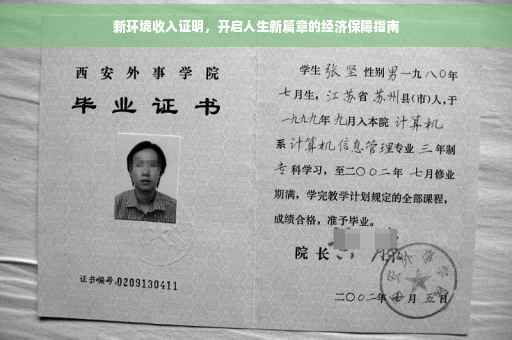 新环境收入证明，开启人生新篇章的经济保障指南
西安外事学院
毕业证书
证书编号:0209130411
学生 张坚 性别 男 一九八〇年
七月生，江苏省 苏州县(市)人，于
一九九九年 九月入本院 计算机
系 计算机信息管理专业 三年制
专科学习，至二〇〇二年 七月修业
期满，学完教学计划规定的全部课程，
成绩合格，准予毕业。
院长
二〇〇二年 月五日